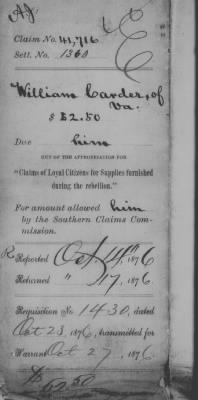 Claim No. 41,716
Sett. No. 1360
William Carder, of
Va.
$ 52.50
Due him
OUT OF THE APPROPRIATION FOR
"Claims of Loyal Citizens for Supplies furnished
during the rebellion."
For amount allowed him
by the Southern Claims Com-
mission.
R Reported Oct 14th 1876
Returned " 17, 1876
Requisition No 1430, dated
Oct 23, 1876, transmitted for
Warrant Oct 27, 1876
52.50